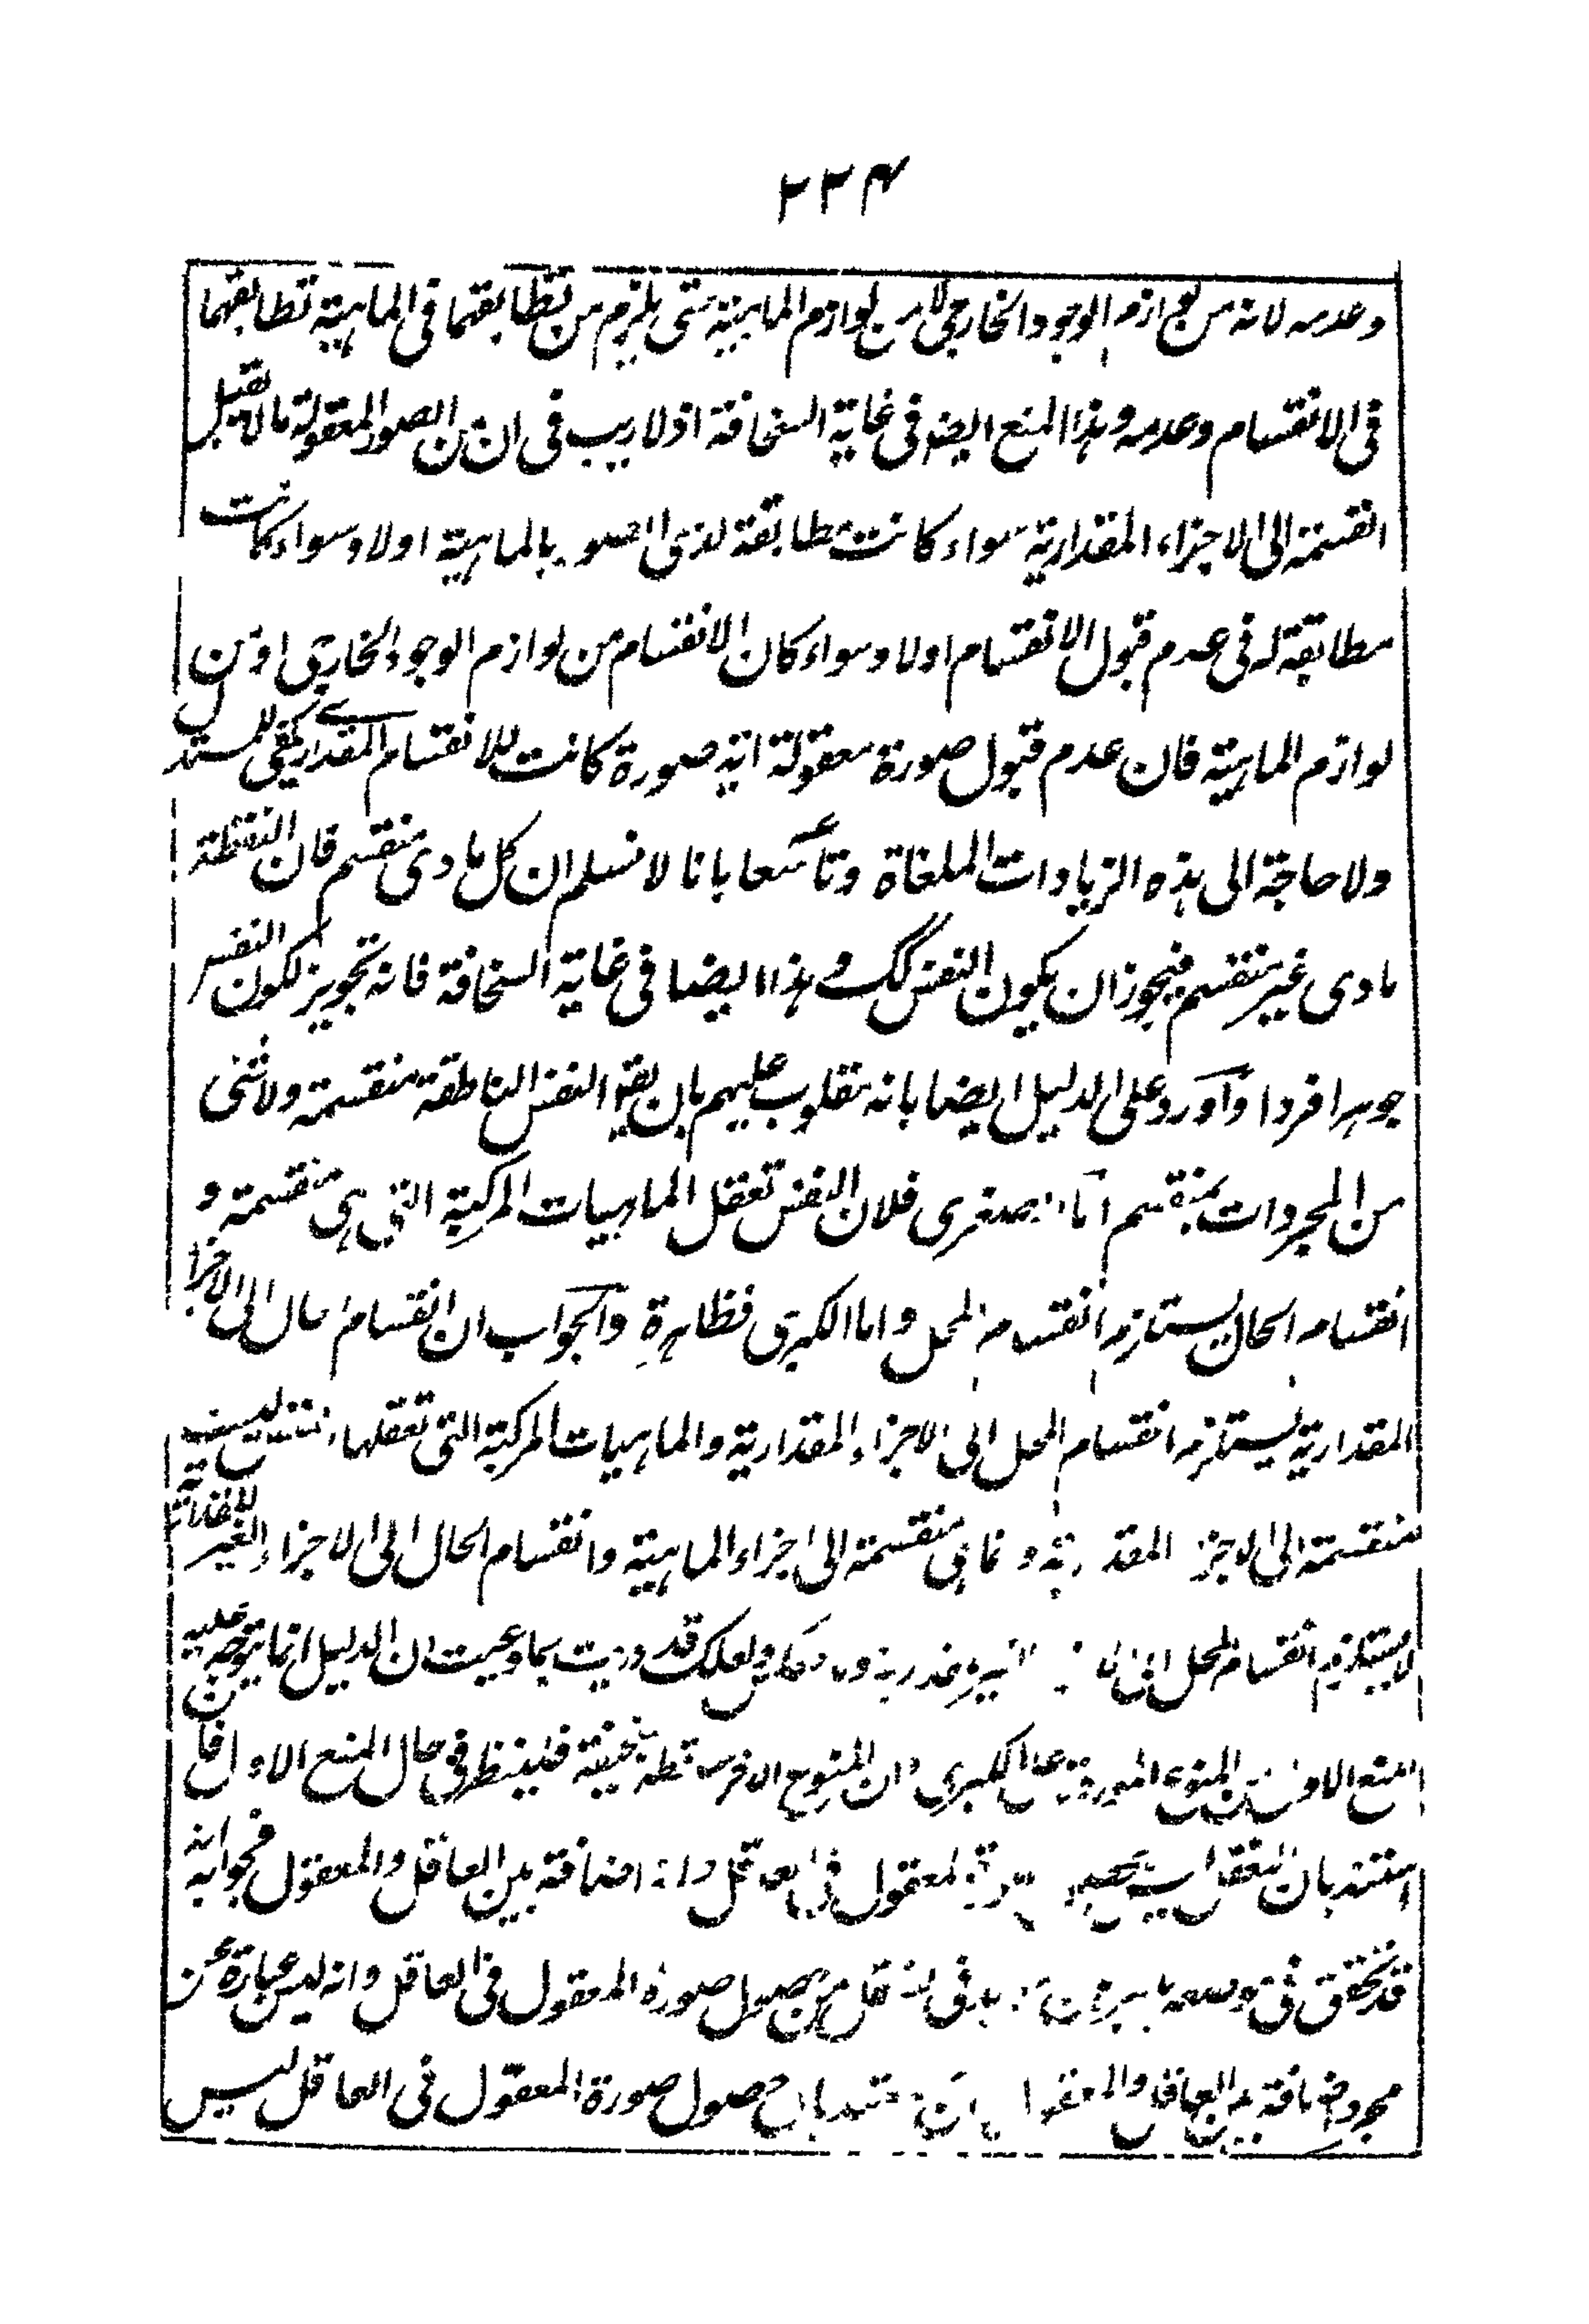 ٢٣٤
وعدمه لانه من لوازم الوجود الخارجى لا من لوازم الماهية حتى يلزم من تطابقهما فى الماهية تطابقهما
فى الانقسام وعدمه وهذا المنع ايضا فى غاية السخافة اذ لا ريب فى ان من الصور المعقولة ما لا يقبل
القسمة الى الاجزاء المقدارية سواء كانت مطابقة لذى الصورة بالماهية اولا وسواء كانت
مطابقة له فى عدم قبول الانقسام اولا وسواء كان الانقسام من لوازم الوجود الخارجى او من
لوازم الماهية فان عدم قبول صورة معقولة اية صورة كانت للانقسام المقدارى يكفى للمستدل
ولا حاجة الى هذه الزيادات الملغاة وتاسعا بانا لا نسلم ان كل مادى منقسم فان النقطة
مادى غير منقسم فيجوز ان يكون النفس كك وهذا ايضا فى غاية السخافة فانه تجويز لكون النفس
جوهرا فردا واورد على الدليل ايضا بانه مقلوب عليهم بان يقو النفس الناطقة منقسمة ولا شئى
من المجردات بمنقسم اما الصغرى فلان النفس تعقل الماهيات المركبة التى هى منقسمة و
انقسام الحال يستلزم انقسام المحل واما الكبرى فظاهرة والجواب ان انقسام الحال الى الاجزا
المقدارية يستلزم انقسام المحل الى الاجزاء المقدارية والماهيات المركبة التى تعقلها النفس ليست
منقسمة الى الاجزاء المقدارية وانما هى منقسمة الى اجزاء الماهية وانقسام الحال الى الاجزاء الغير المقدارية
لا يستلزم انقسام المحل الى الاجزاء الغير المقدارية ولعلك قد دريت بما وعيت ان الدليل انما يتوجه عليه
المنع الاول من المنوع الموردة على الكبرى وان المنوع الاخر ساقطة سخيفة فلينظر فى حال المنع الاول فان
استند بان التعقل ليس بحصول صورة المعقول فى العاقل وانه اضافة بين العاقل والمعقول فجوابه انه
قد تحقق فى موضعه بالبرهان انه لابد فى التعقل من حصول صورة المعقول فى العاقل وانه ليس عبارة عن
مجرد اضافة بين العاقل والمعقول وان استند بان حصول صورة المعقول فى العاقل ليس